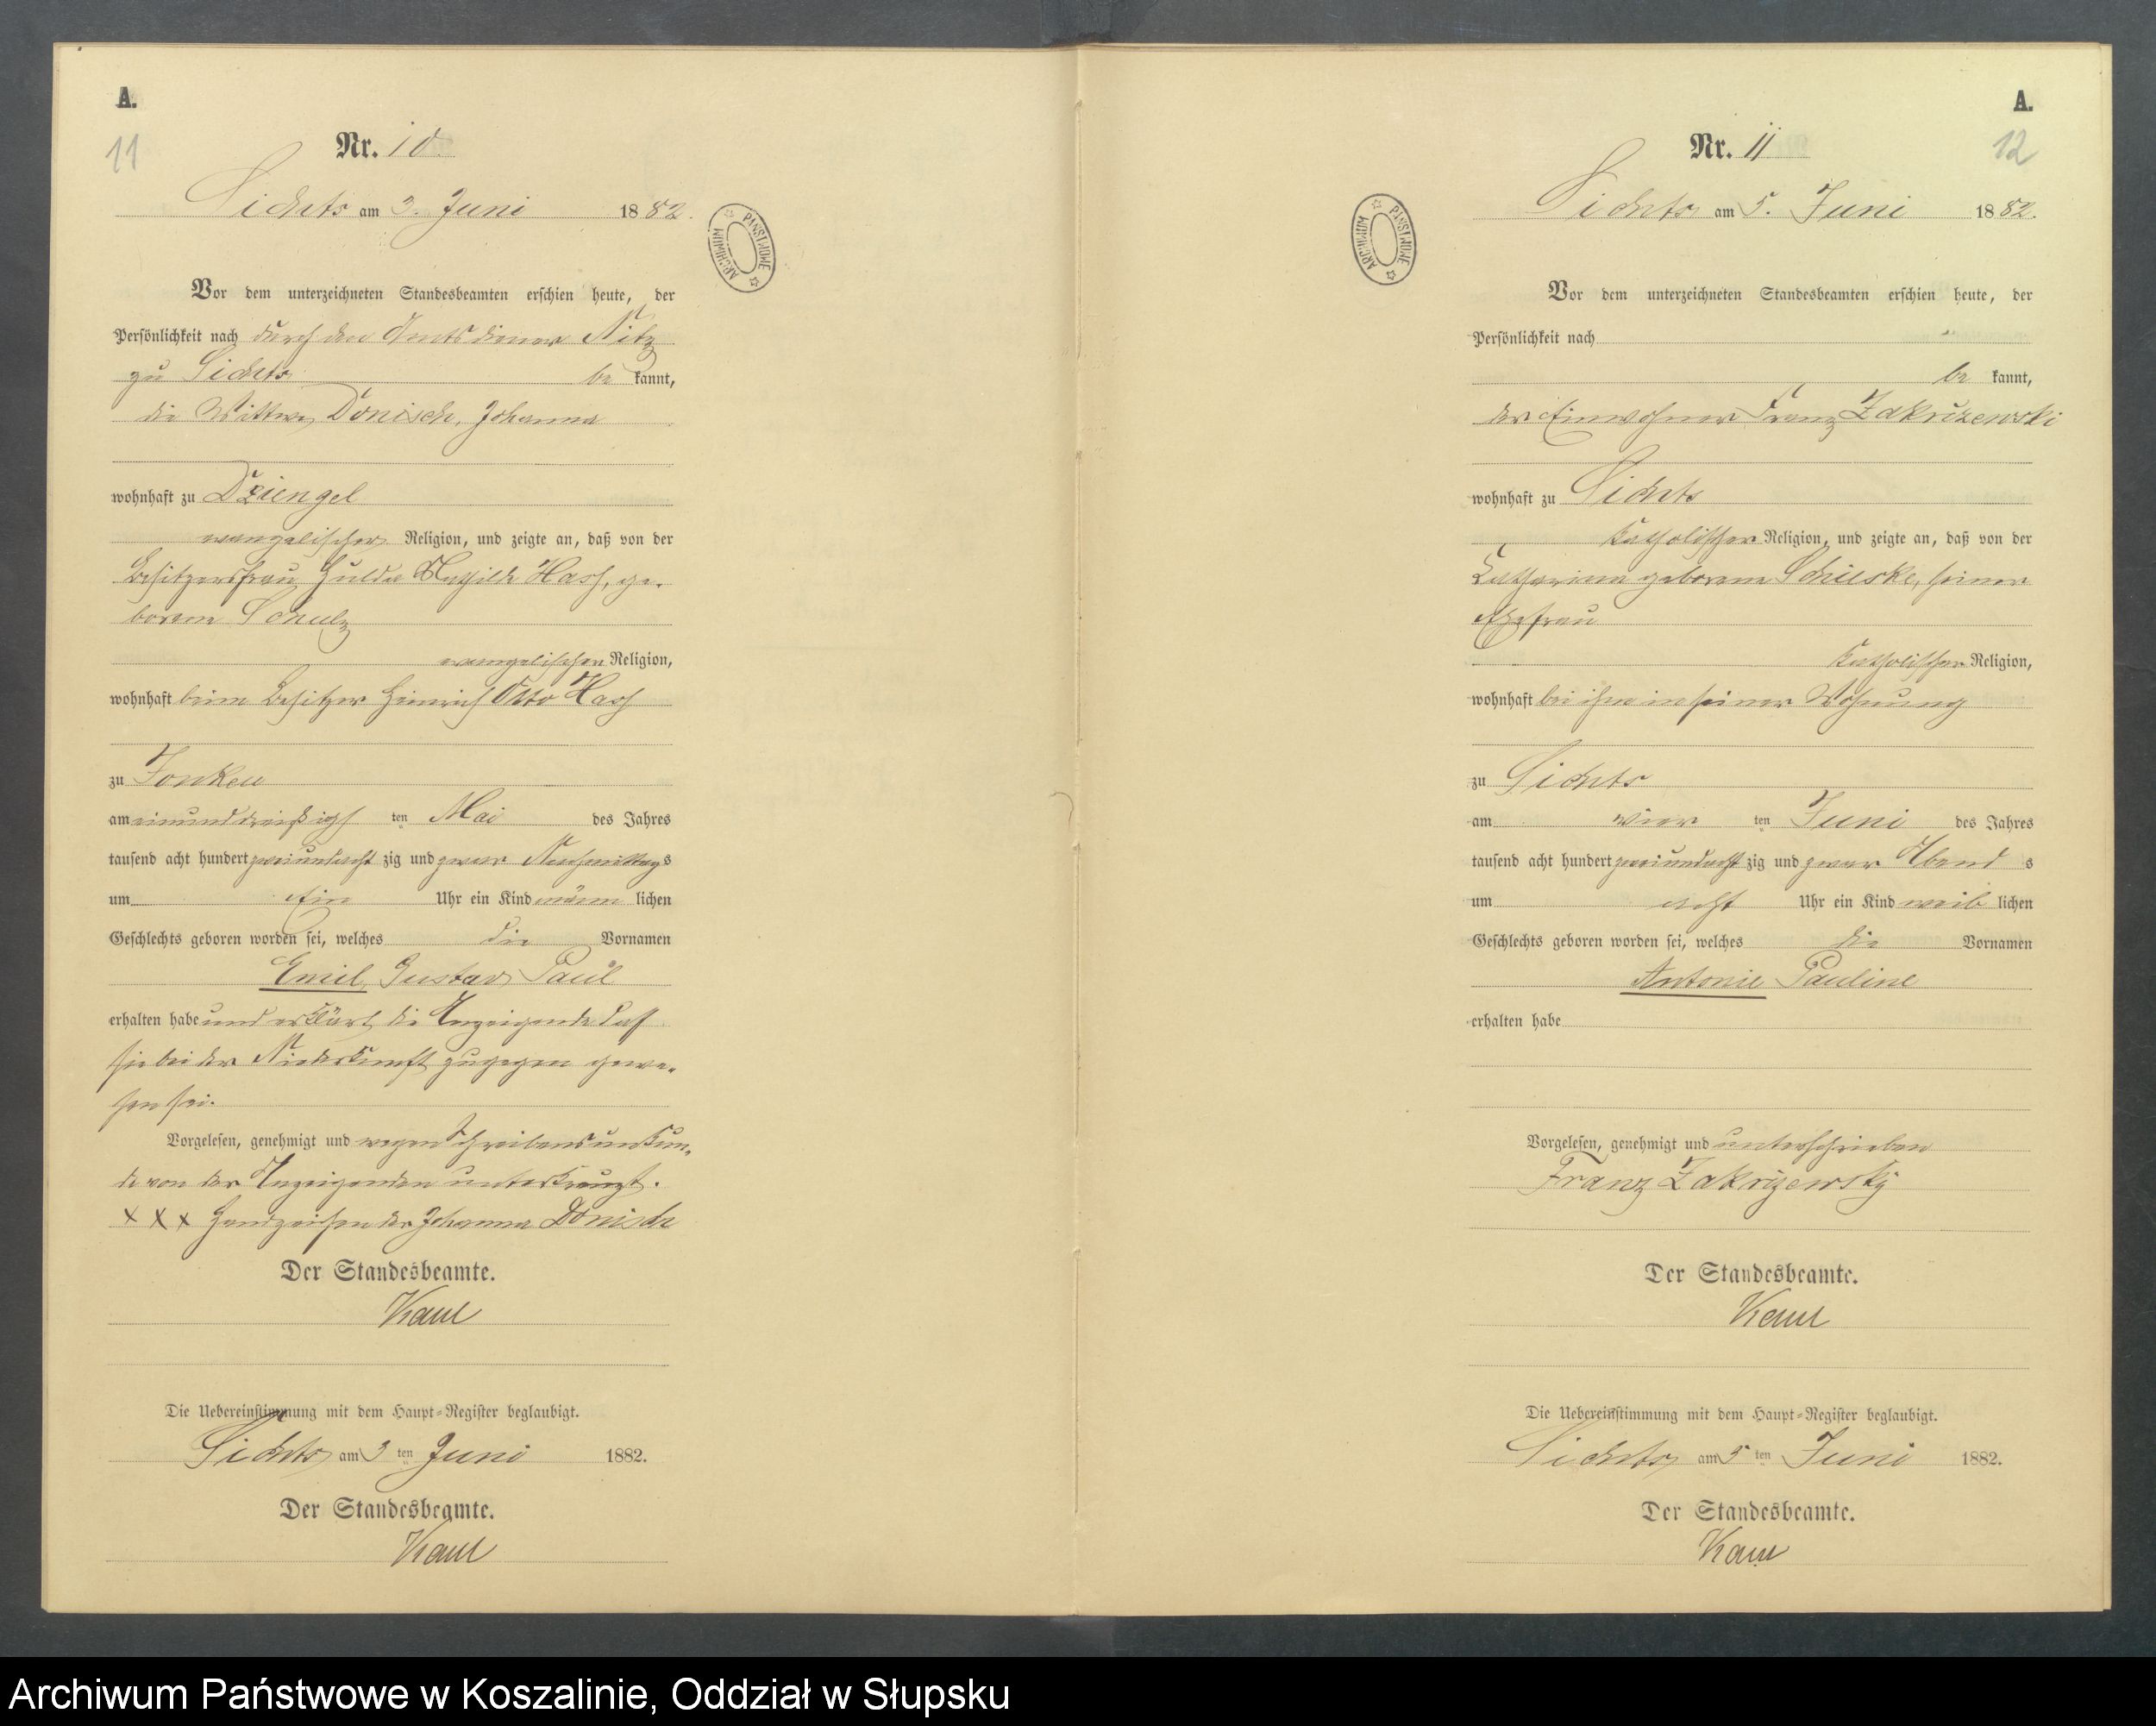 A.
11
Nr. 10.
Lichts am 3. Juni 1882.
ARCHIWUM PAŃSTWOWE
Vor dem unterzeichneten Standesbeamten erschien heute, der
Persönlichkeit nach durch den Amtsdiener Nitz
zu Lichts be kannt,
die Wittwe Dönisch, Johanna
wohnhaft zu Dziengel
evangelischer Religion, und zeigte an, daß von der
Besitzersfrau Hulda Mathilde Hass, ge-
borene Schulz
evangelischer Religion,
wohnhaft beim Besitzer Heinrich Otto Hass
zu Jonken
am einunddreißigs ten Mai des Jahres
tausend acht hundert zweiundacht zig und zwar Nachmittags
um Ein Uhr ein Kind männ lichen
Geschlechts geboren worden sei, welches die Vornamen
Emil Gustav Paul
erhalten habe und erklärt die Anzeigende daß
sie bei der Niederkunft zugegen gewe-
sen sei.
Vorgelesen, genehmigt und wegen Schreibensunkun-
de von der Anzeigenden unterkreuzt.
XXX Handzeichen der Johanna Dönisch
Der Standesbeamte.
Kaul
Die Uebereinstimmung mit dem Haupt-Register beglaubigt.
Lichts am 3 ten Juni 1882.
Der Standesbeamte.
Kaul
A.
12
Nr. 11
Lichts am 5. Juni 1882.
ARCHIWUM PAŃSTWOWE
Vor dem unterzeichneten Standesbeamten erschien heute, der
Persönlichkeit nach
be kannt,
der Einwohner Franz Zakrizewski
wohnhaft zu Lichts
katholischer Religion, und zeigte an, daß von der
Catharina geborene Schieske, seiner
Ehefrau
katholischer Religion,
wohnhaft bei ihm in seiner Wohnung
zu Lichts
am vier ten Juni des Jahres
tausend acht hundert zweiundacht zig und zwar Abend s
um acht Uhr ein Kind weib lichen
Geschlechts geboren worden sei, welches die Vornamen
Antonie Pauline
erhalten habe
Vorgelesen, genehmigt und unterschrieben
Franz Zakrizewsky
Der Standesbeamte.
Kaul
Die Uebereinstimmung mit dem Haupt-Register beglaubigt.
Lichts am 5 ten Juni 1882.
Der Standesbeamte.
Kaul
Archiwum Państwowe w Koszalinie, Oddział w Słupsku